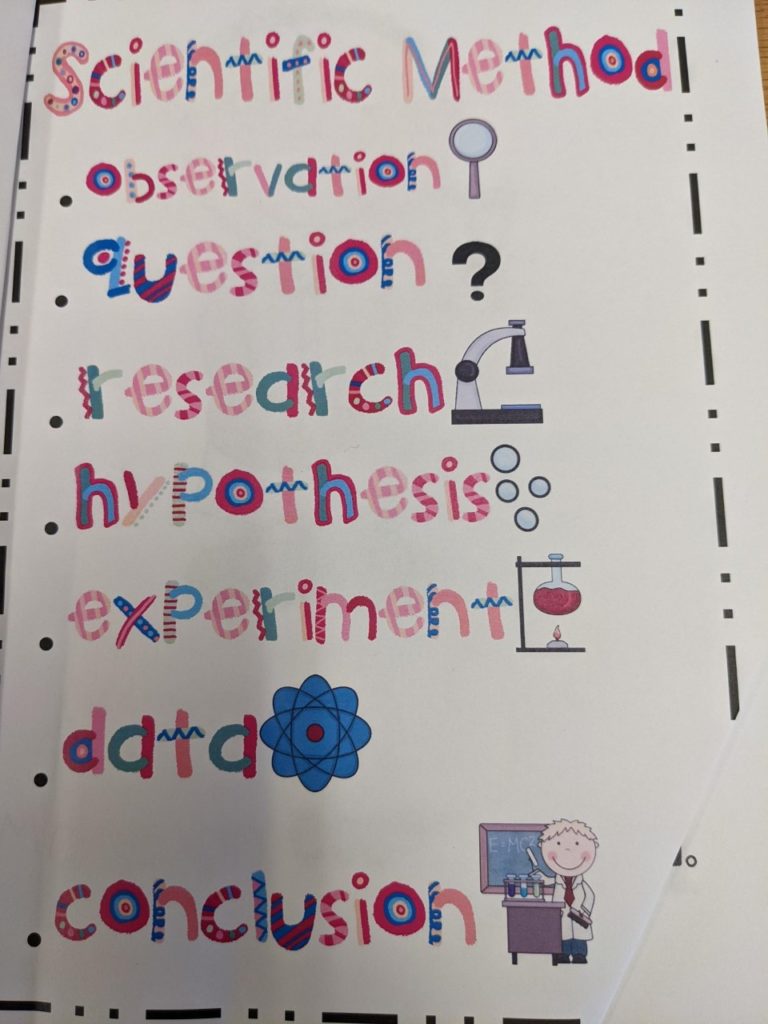 Scientific Method
observation
question ?
research
hypothesis
experiment
data
conclusion
E=MC2